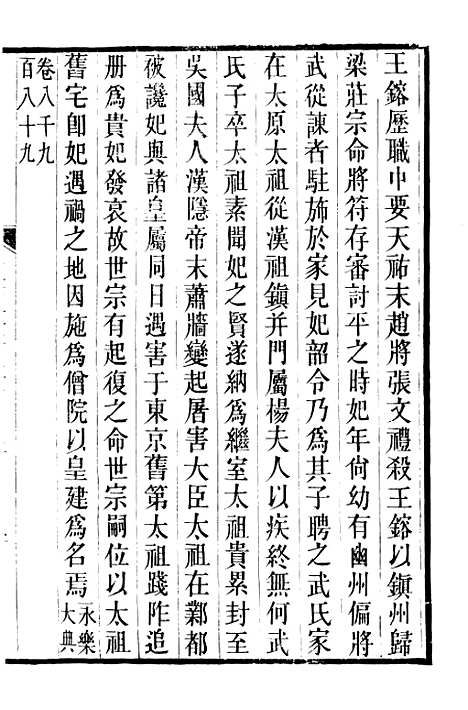 王鎔歷職中要天祐末趙將張文禮殺王鎔以鎮州歸
梁莊宗命將符存審討平之時妃年尙幼有幽州偏將
武從諫者駐旆於家見妃韶令乃爲其子聘之武氏家
在太原太祖從漢祖鎮并門屬楊夫人以疾終無何武
氏子卒太祖素聞妃之賢遂納爲繼室太祖貴累封至
吳國夫人漢隱帝末蕭牆變起屠害大臣太祖在鄴都
被讒妃與諸皇屬同日遇害于東京舊第太祖踐阼追
册爲貴妃發哀故世宗有起復之命世宗嗣位以太祖
舊宅卽妃遇禍之地因施爲僧院以皇建爲名焉永樂
大典
卷八千九
百八十九